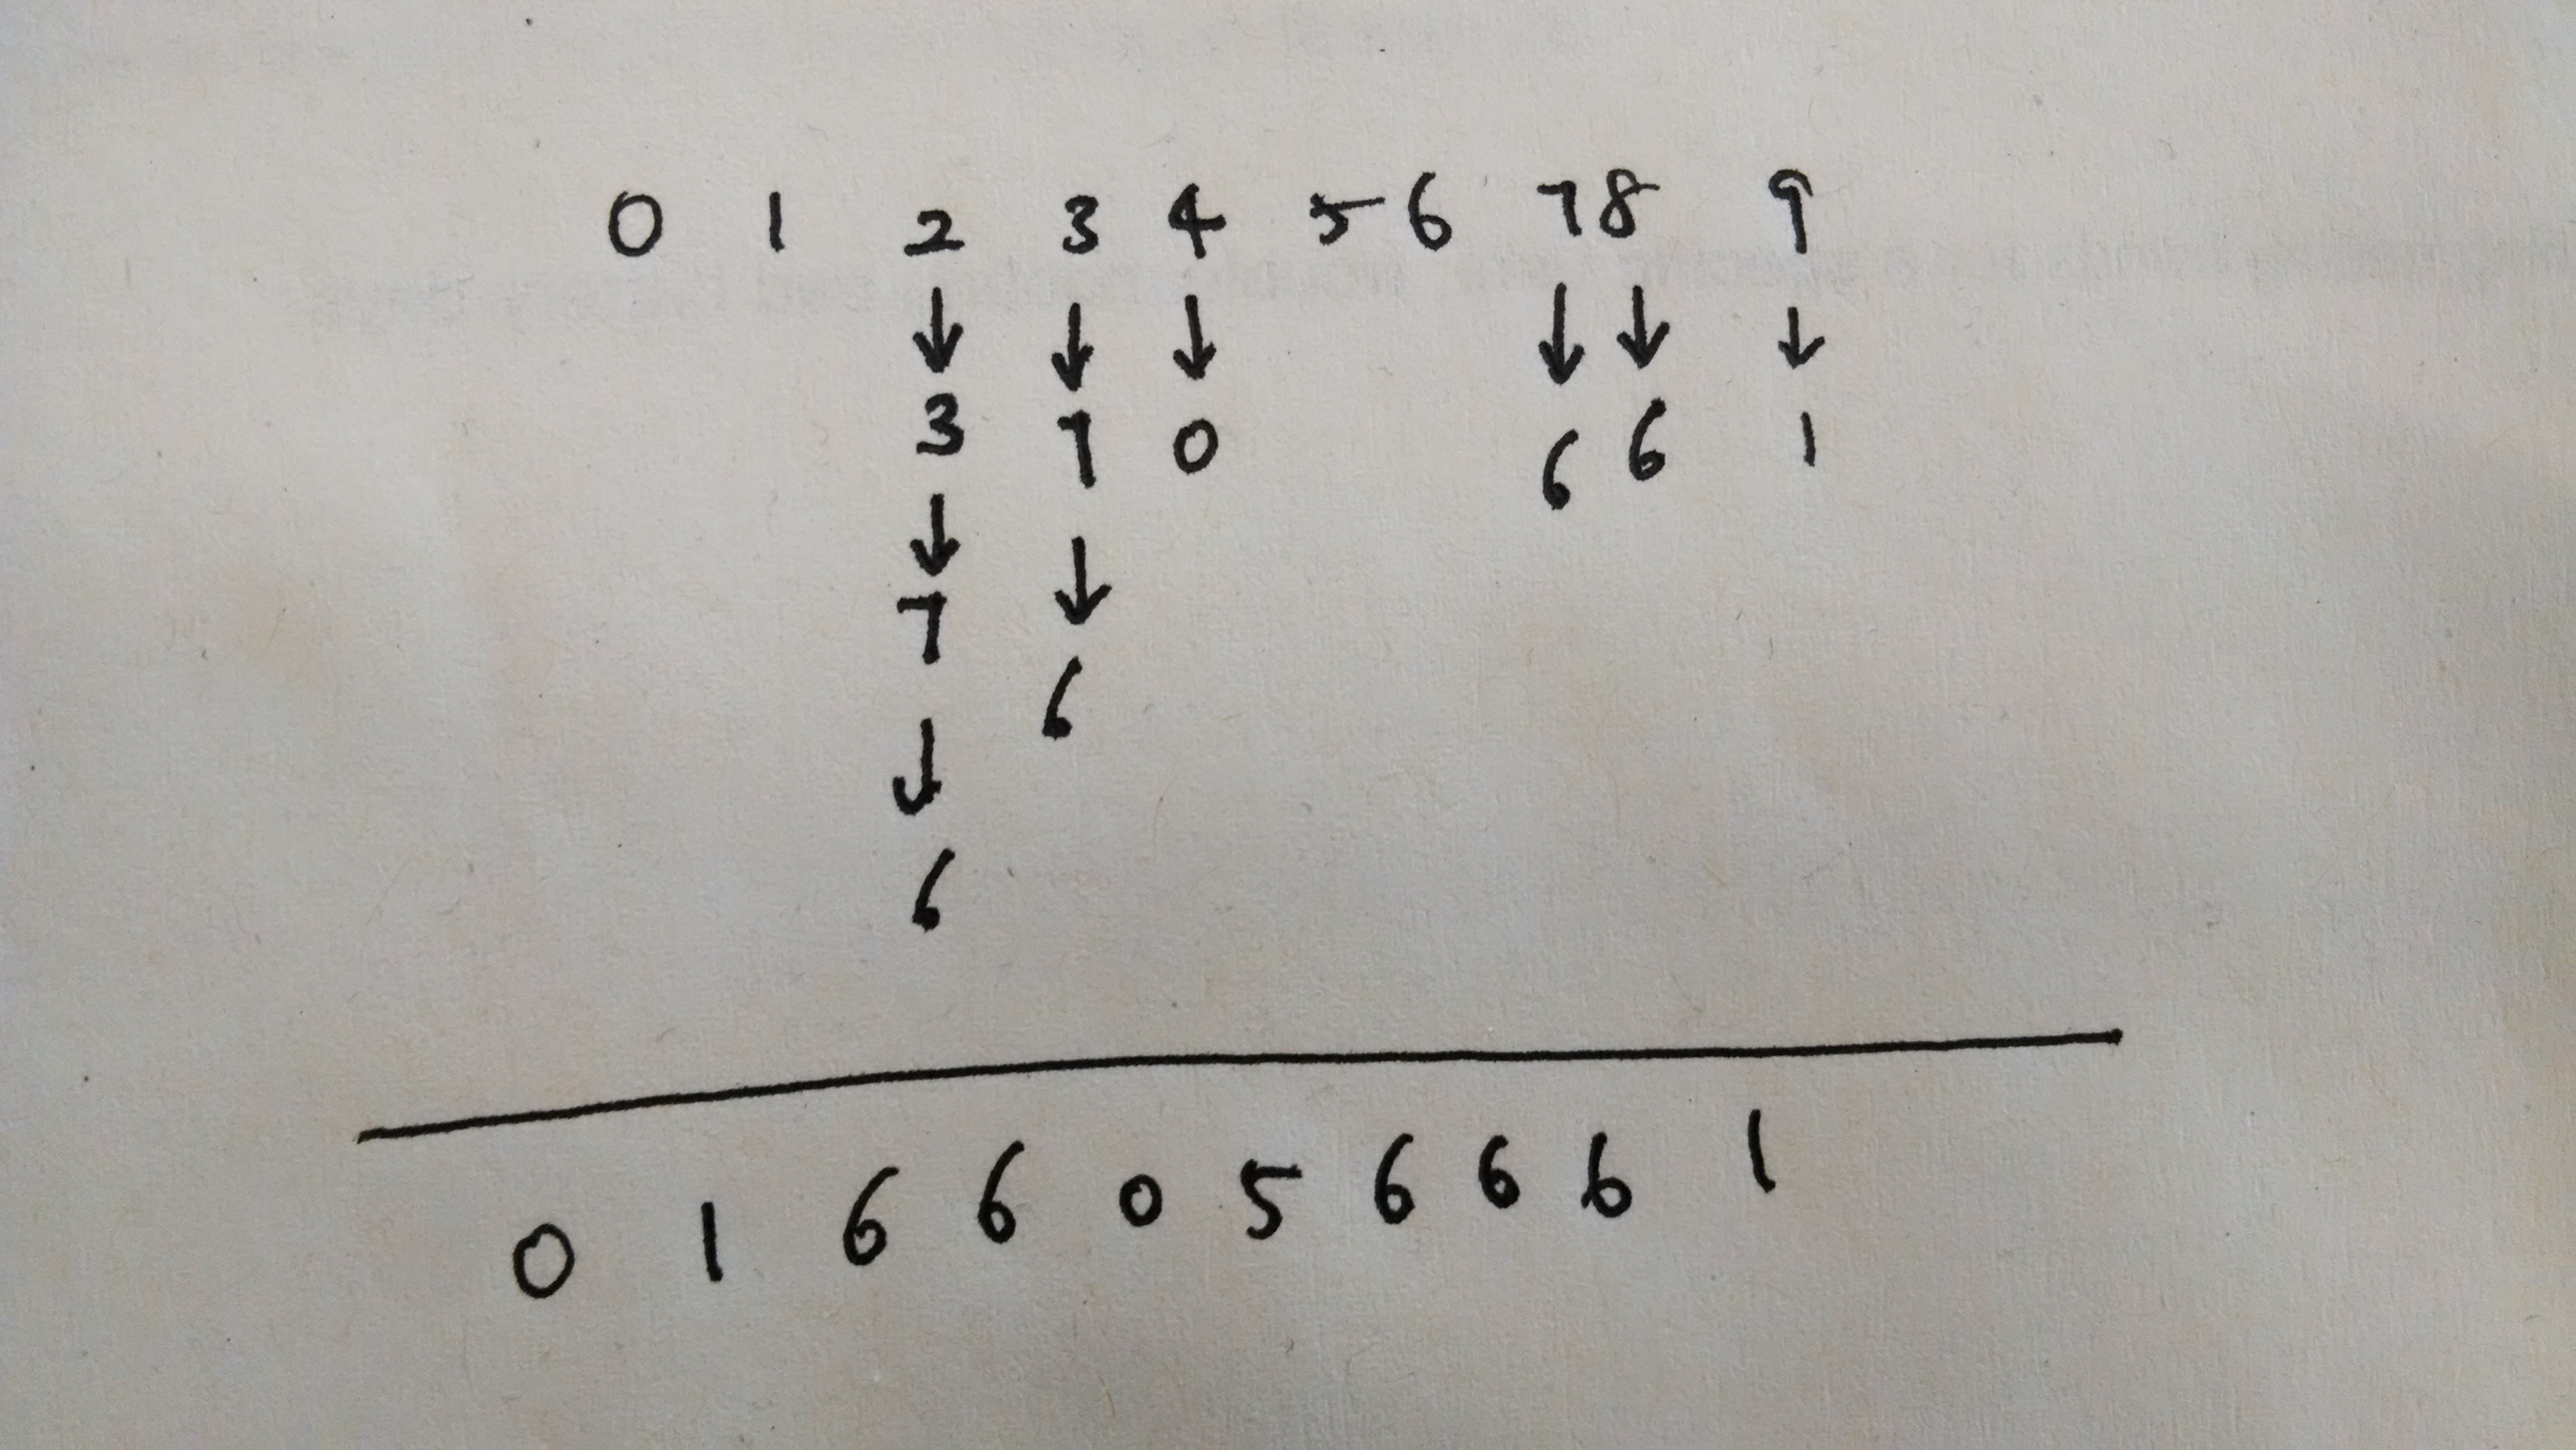 0 1 2 3 4 5 6 7 8 9
↓ ↓ ↓ ↓ ↓ ↓
3 7 0 6 6 1
↓ ↓
7 6
↓
6
0 1 6 6 0 5 6 6 6 1